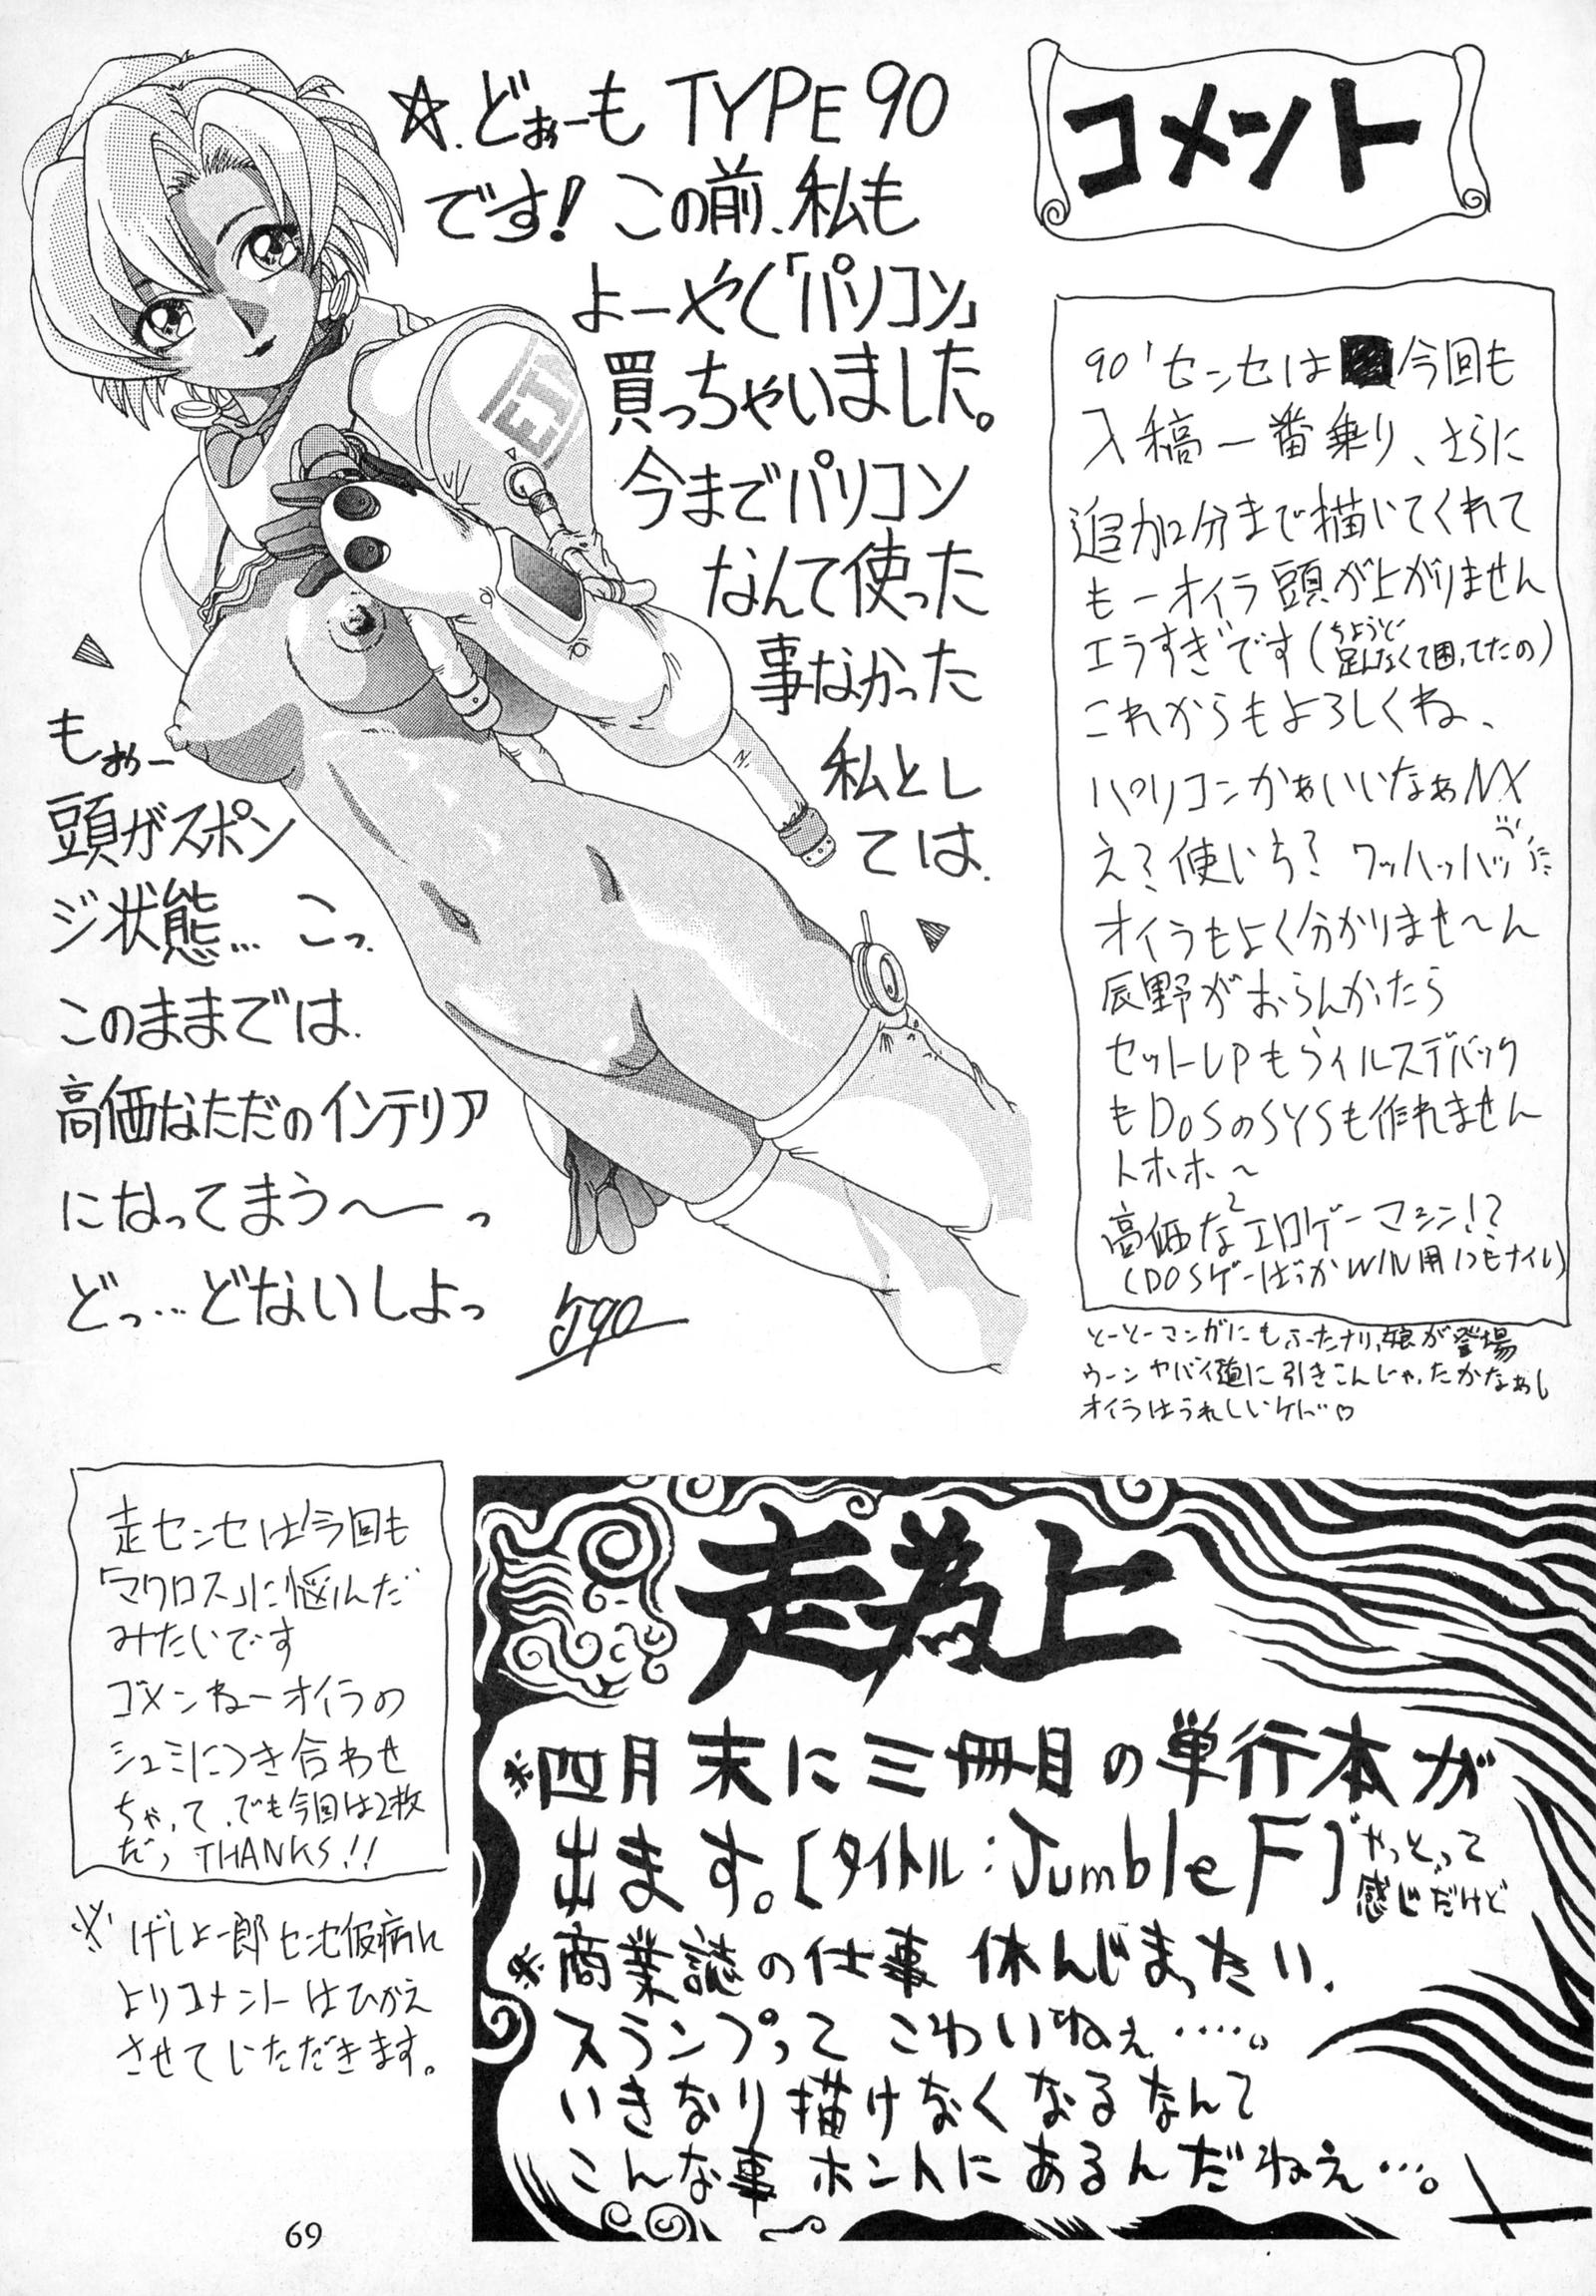 コメント
☆.どぉーも TYPE 90
です! この前、私も
よーやく「パソコン」
買っちゃいました。
今までパソコン
なんて使った
事なかった
私とし
ては.
もぉー
頭がスポン
ジ状態… こっ.
このままでは.
高価なただのインテリア
になってまう〜ーっ
どっ…どないしよっ
J90
EJ
90'センセは 今回も
入稿一番乗り、さらに
追加2分まで描いてくれて
もーオイラ頭が上がりません
エラすぎです(ちょうど
足んなくて困ってたの)
これからもよろしくね、
パソコンかぁいいなぁNX
え?使いち? ワッハッハッ
オイラもよく分かりませ〜ん
辰野がおらんかたら
セットUPもウィルスデバック
もDOSのSYSも作れません
トホホ〜
高価なエロゲーマシン!?
(DOSゲーばっかWIN用1つもナイし)
とーとーマンガにもふたナリっ娘が登場
ウーンヤバイ道に引きこんじゃったかなぁし
オイラはうれしいケド♡
走センセは今回も
「マクロス」に悩んだ
みたいです
ゴメンねーオイラの
シュミにつき合わせ
ちゃって、でも今回は2枚
だっ THANKS!!
※げしょ一郎センセ仮病に
よりコメントはひかえ
させていただきます。
走為上
※四月末に三冊目の単行本が
出ます。[タイトル:Jumble F]やっとって
感じだけど
※商業誌の仕事 休んじまったい.
スランプって こわいねぇ……。
いきなり描けなくなるなんて
こんな事 ホントにあるんだねえ…。
69